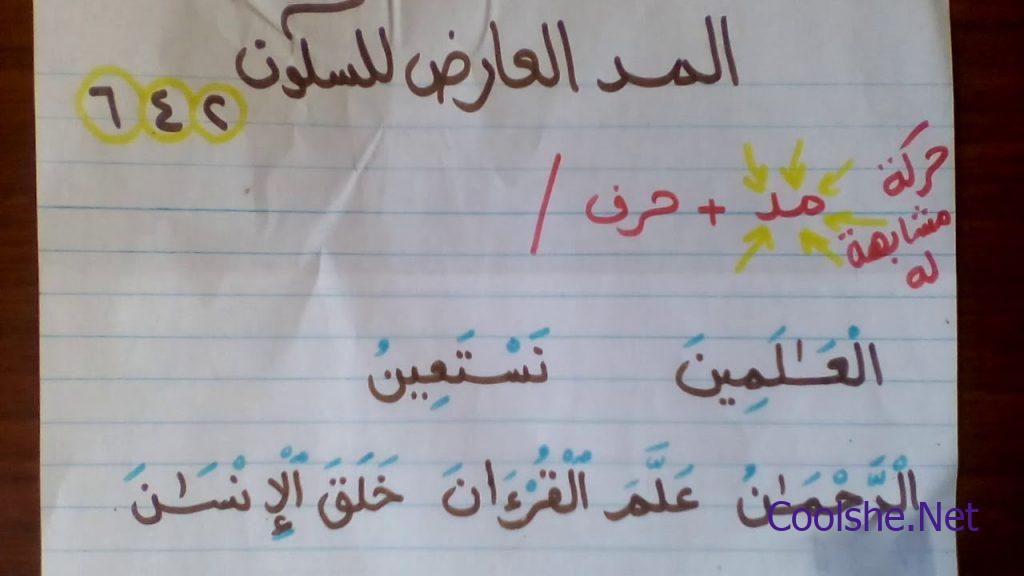 المد العارض للسكون
٢ ٤ ٦
حركة
مد + حرف /
مشابهة
له
الْعَـٰلَمِينَ نَسْتَعِينُ
الْرَّحْمَـٰنُ عَلَّمَ الْقُرْءَانَ خَلَقَ الْإِنْسَـٰنَ
Coolshe.Net